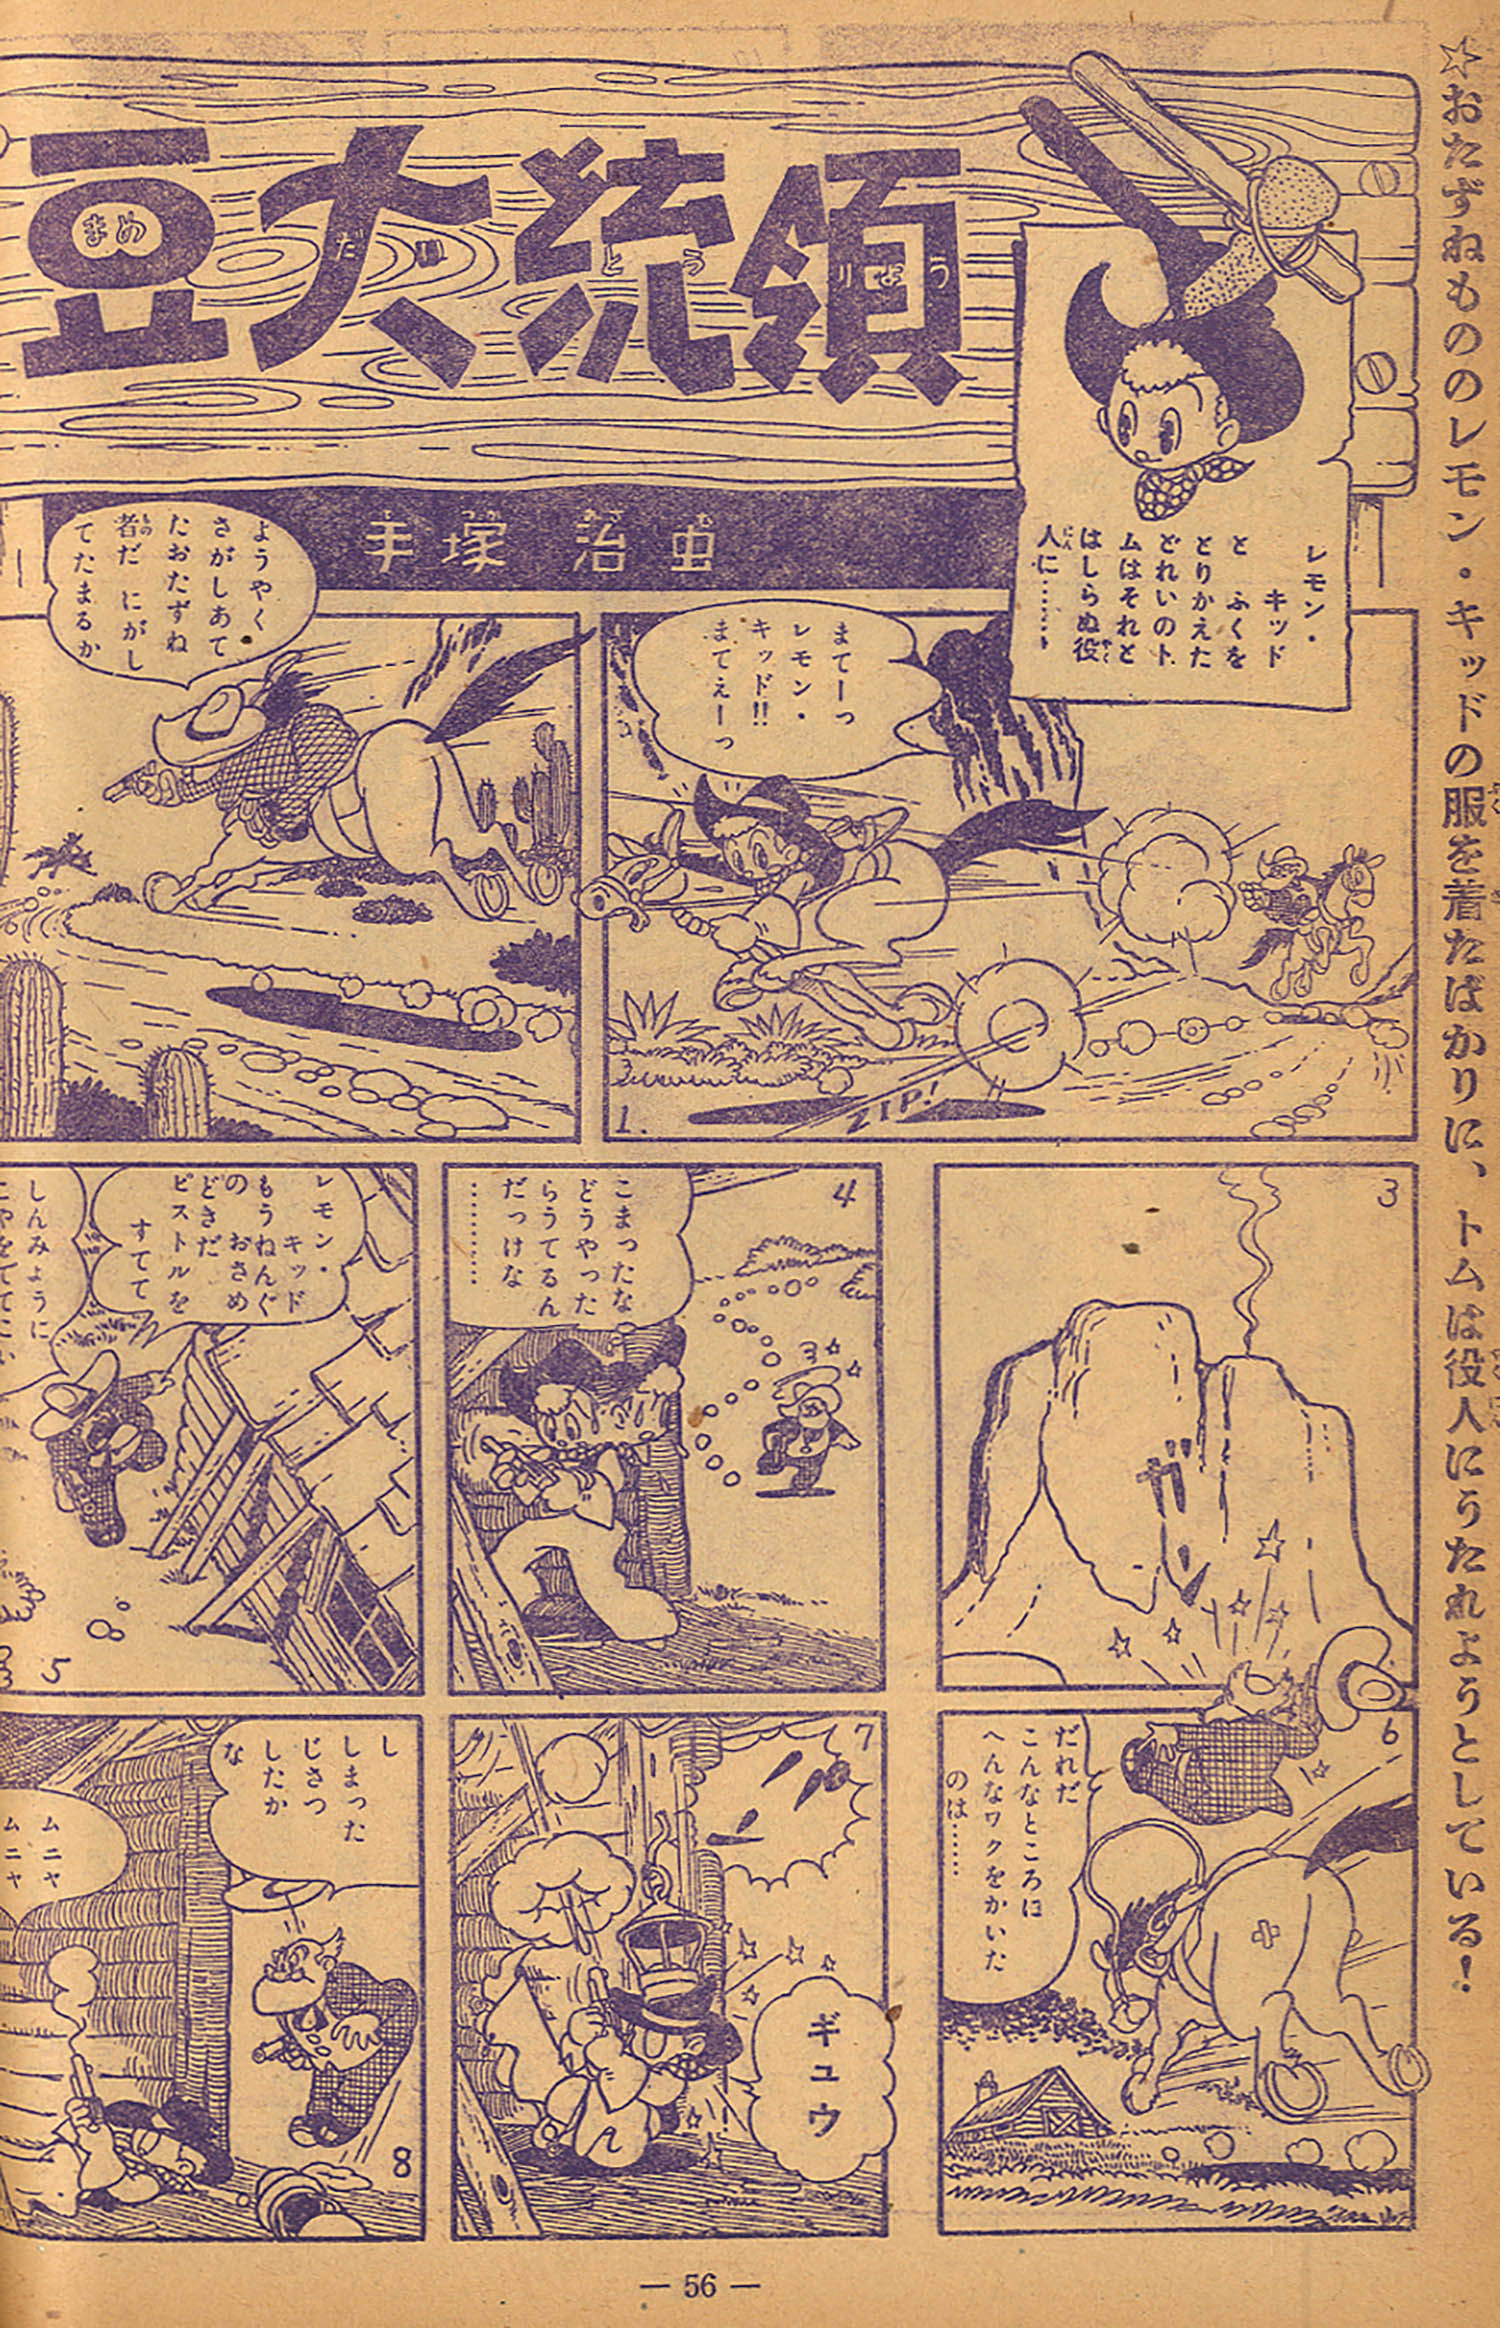 ☆おたずねもののレモン・キッドの服を着たばかりに、トムは役人にうたれようとしている！
豆大統領
まめ だい とう りょう
手塚治虫
レモン・
キッド
と ふくを
とりかえた
どれいのト
ムはそれと
はしらぬ役
人に……
まてーっ
レモン・
キッド!!
まてぇーっ
ZIP!
1.
ようやく
さがしあて
たおたずね
者だ にがし
てたまるか
3
ガーン
4
こまったな
どうやった
らうてるん
だっけな
…………
レモン・
キッド
もうねんぐ
の おさめ
どきだ
ピストルを
すてて
しんみょうに
5
6
だれだ
こんなところに
へんなワクをかいた
のは……
7
ギュウ
し
しまった
じさつ
したか
な
ムニャ
ムニャ
8
— 56 —